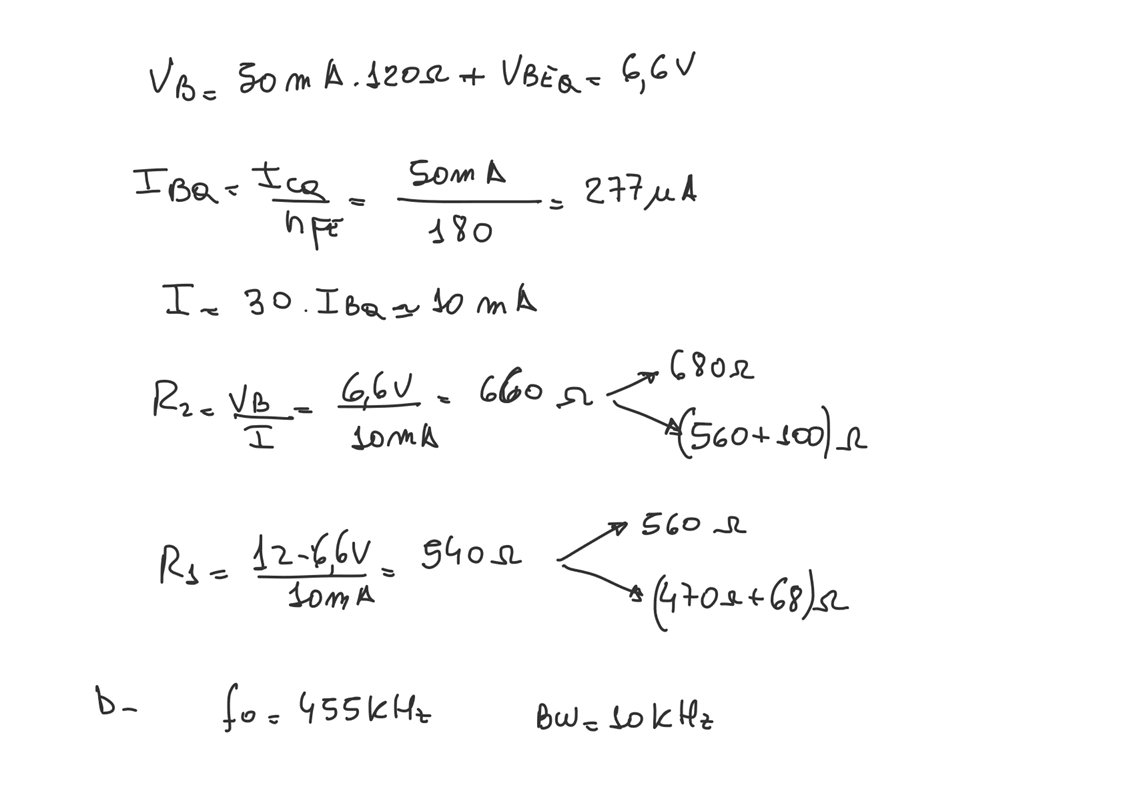 VB = 50mA.120Ω + VBEQ = 6,6V
IBQ = ICQ/hFE = 50mA/180 = 277μA
I = 30.IBQ ≃ 10mA
R2 = VB/I = 6,6V/10mA = 660Ω → 680Ω
→ (560+100)Ω
R1 = 12-6,6V/10mA = 540Ω → 560Ω
→ (470Ω+68)Ω
b- fo = 455kHz BW = 10kHz